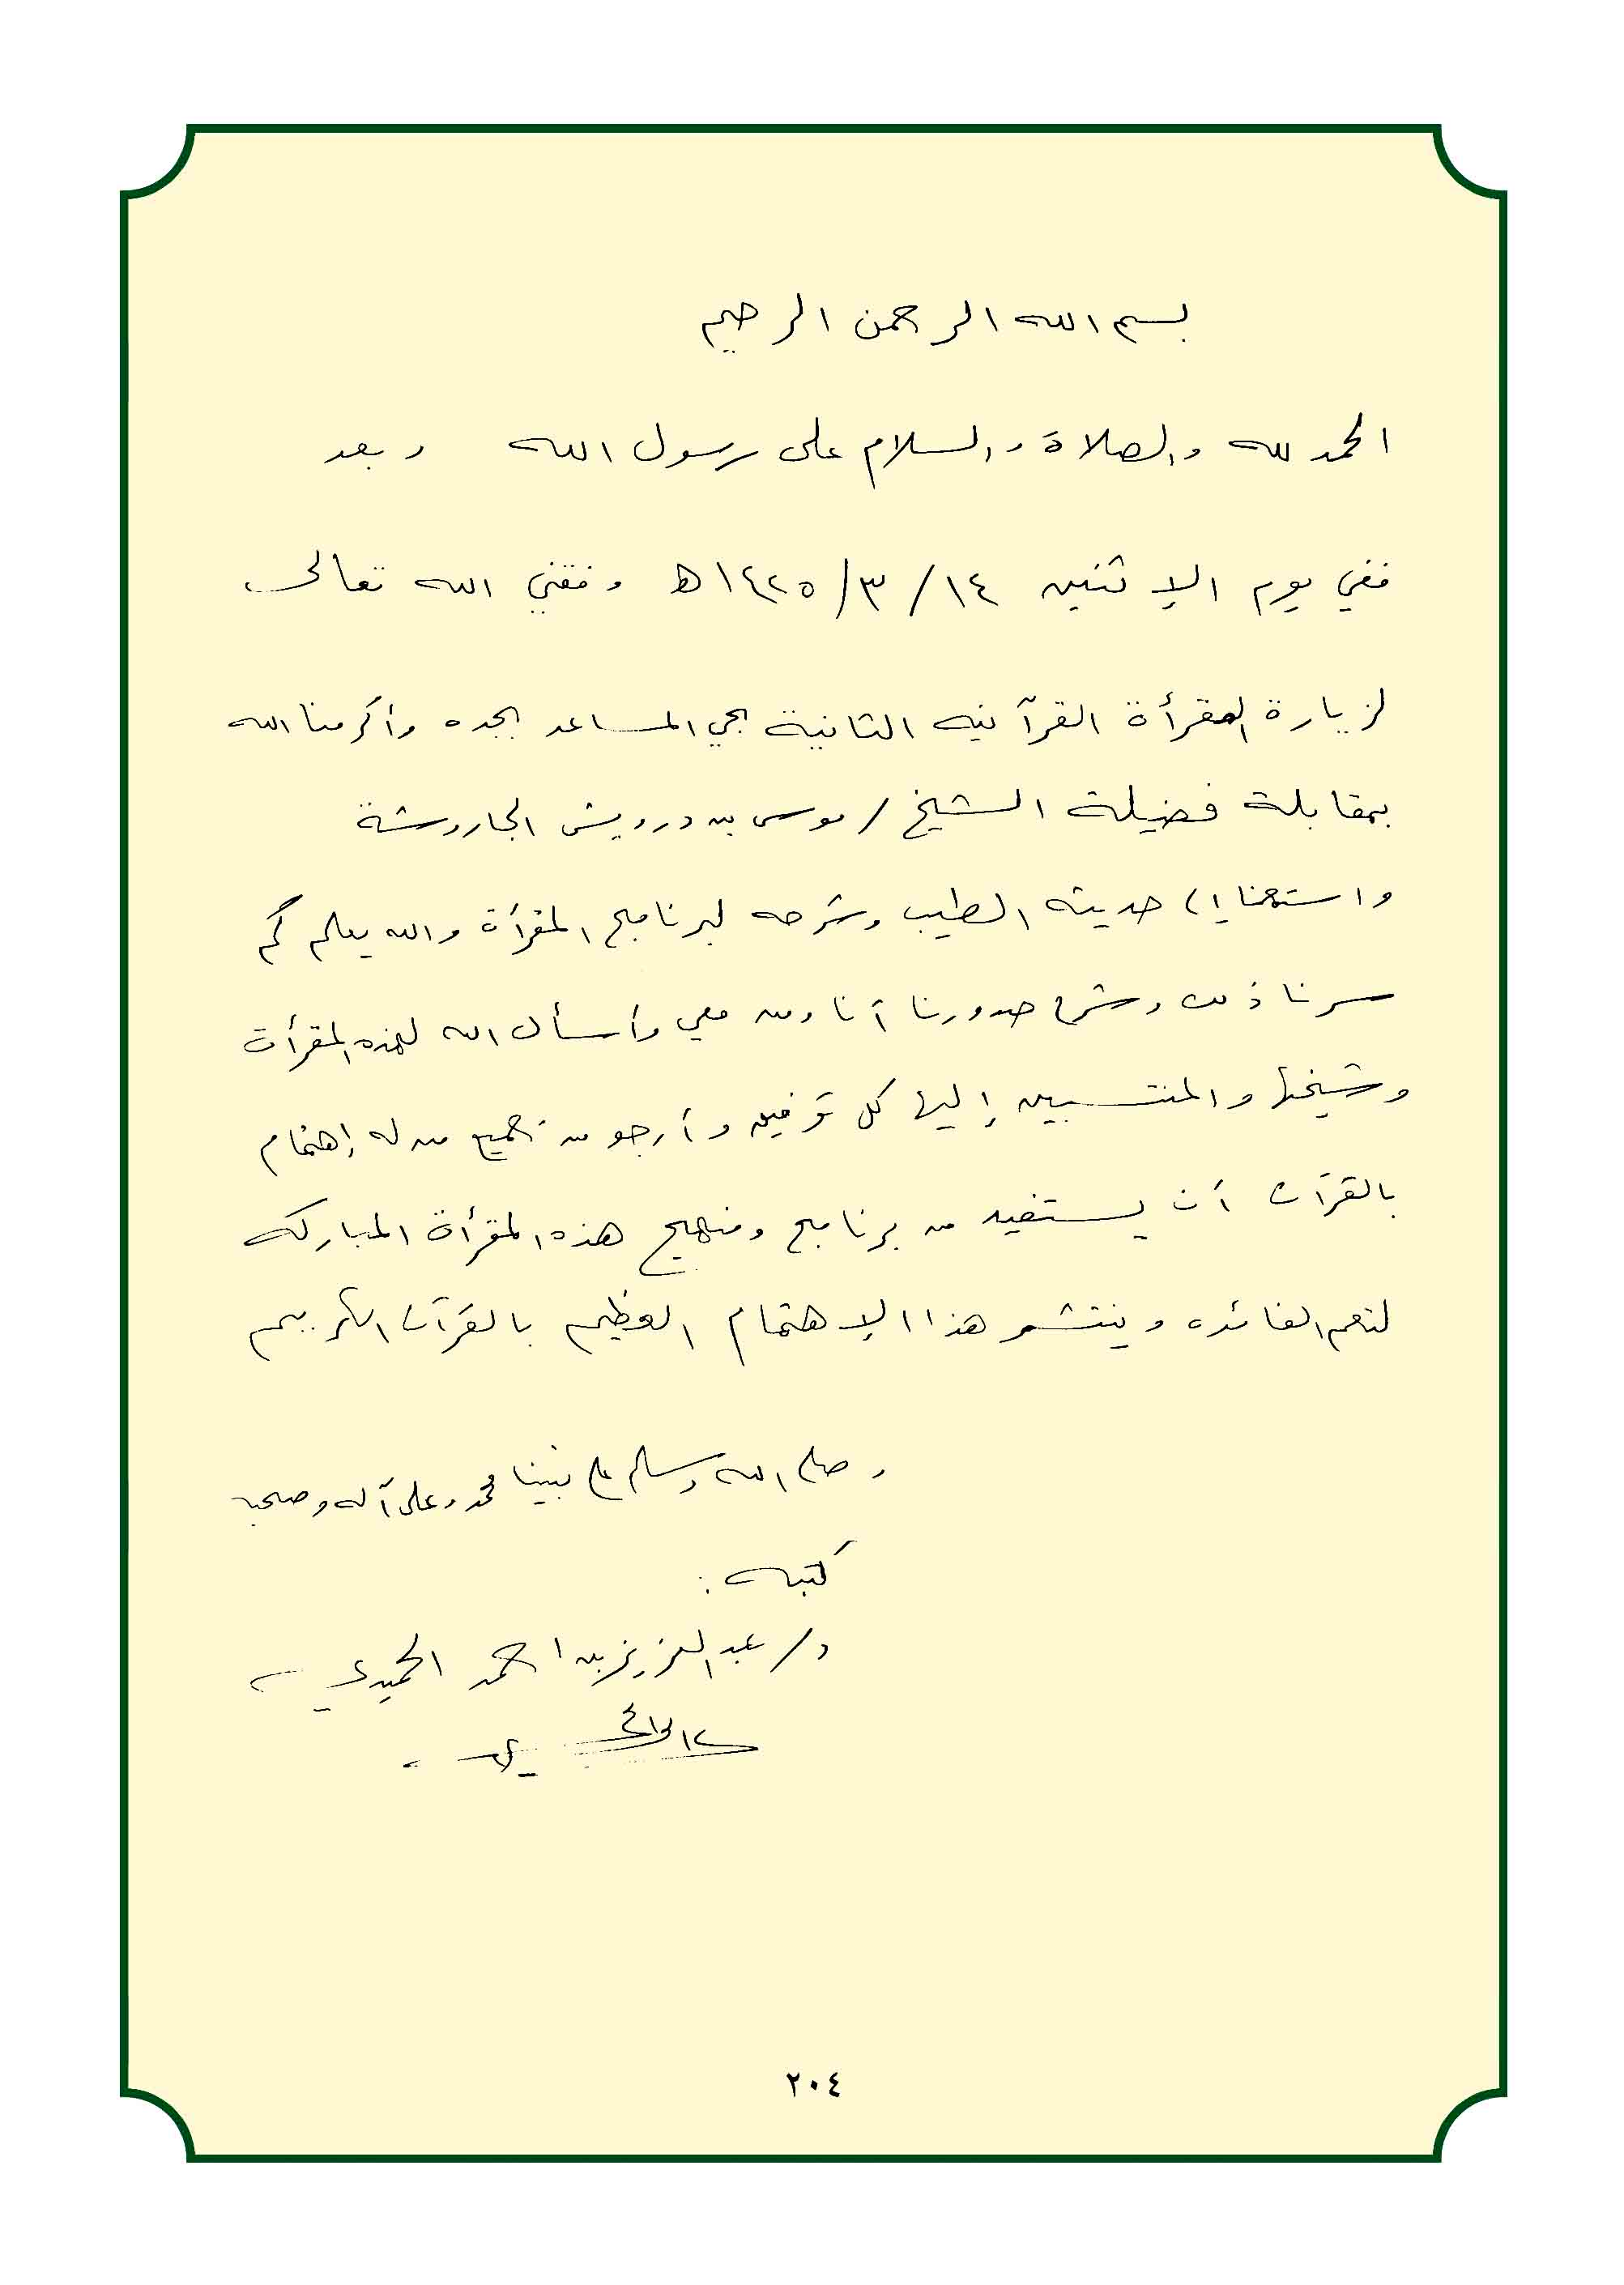 بسم الله الرحمن الرحيم
الحمد لله والصلاة والسلام على رسول الله وبعد
ففي يوم الإثنين ١٤/٣/١٤٢٥هـ وفقني الله تعالى
لزيارة المقرأة القرآنيه الثانية بحي المساعد بجده وأكرمنا الله
بمقابلة فضيلة الشيخ / موسى بن درويش الجاروشة
واستمعنا إلى حديثه الطيب وشرحه لبرنامج المقرأة والله يعلم كم
سرنا ذلك وشرح صدورنا أنا ومن معي وأسأل الله لهذه المقرأة
وشيخها والمنتسبين إليها كل توفيق وأرجو من جميع من له إهتمام
بالقرآن أن يستفيد من برنامج ومنهج هذه المقرأة المباركه
لتعم الفائده وينتشر هذا الإهتمام العظيم بالقرآن الكريم
وصلى الله وسلم على نبينا محمد وعلى آله وصحبه
كتبه :
د/ عبد العزيز بن احمد الحميدي
٢٠٤